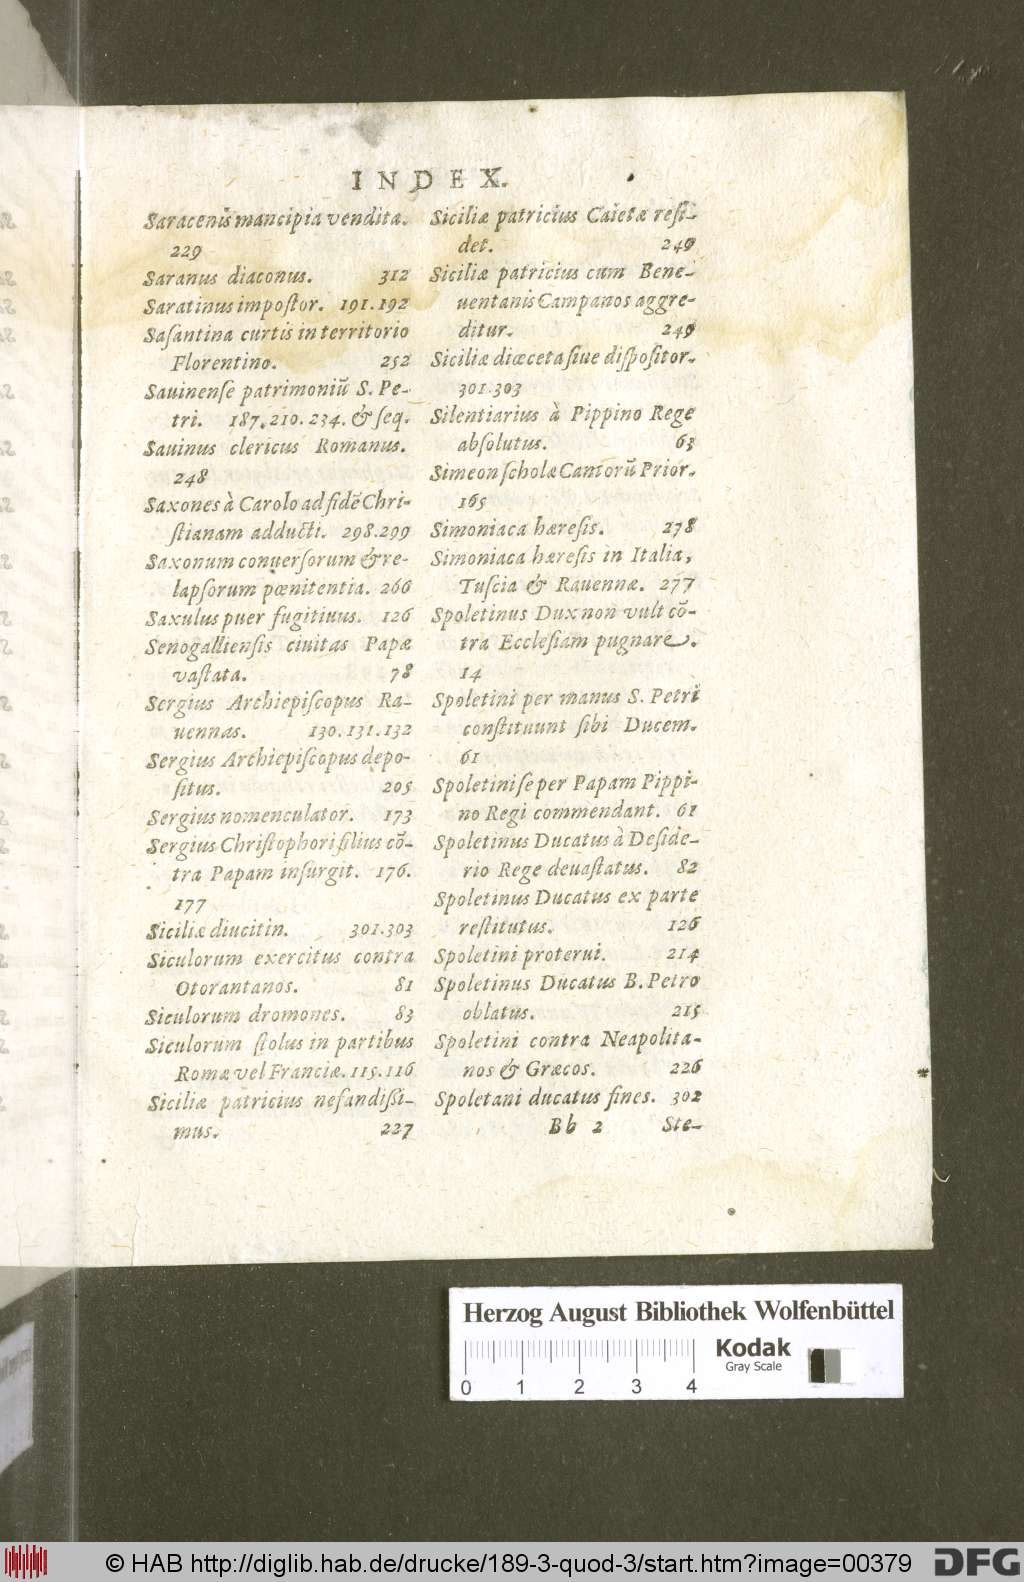 INDEX.
Saracenis mancipia vendita.
229
Saranus diaconus. 312
Saratinus impoſtor. 191.192
Saſantina curtis in territorio
Florentino. 252
Sauinenſe patrimoniũ S. Pe-
tri. 187.210.234. & ſeq.
Sauinus clericus Romanus.
248
Saxones à Carolo ad fidẽ Chri-
ſtianam adducti. 298.299
Saxonum conuerſorum & re-
lapſorum pœnitentia. 266
Saxulus puer fugitiuus. 126
Senogallienſis ciuitas Papæ
vaſtata. 78
Sergius Archiepiſcopus Ra-
uennas. 130.131.132
Sergius Archiepiſcopus depo-
ſitus. 205
Sergius nomenculator. 173
Sergius Chriſtophori filius cõ-
tra Papam inſurgit. 176.
177
Siciliæ diucitin. 301.303
Siculorum exercitus contra
Otorantanos. 81
Siculorum dromones. 83
Siculorum ſtolus in partibus
Romæ vel Franciæ. 115.116
Siciliæ patricius nefandiſſi-
mus. 227
Siciliæ patricius Caietæ reſi-
det. 249
Siciliæ patricius cum Bene-
uentanis Campanos aggre-
ditur. 249
Siciliæ diœceta ſiue diſpoſitor.
301.303
Silentiarius à Pippino Rege
abſolutus. 63
Simeon ſcholæ Cantorũ Prior.
165
Simoniaca hæreſis. 278
Simoniaca hæreſis in Italia,
Tuſcia & Rauennæ. 277
Spoletinus Dux non vult cõ-
tra Eccleſiam pugnare.
14
Spoletini per manus S. Petri
conſtituunt ſibi Ducem.
61
Spoletini ſe per Papam Pippi-
no Regi commendant. 61
Spoletinus Ducatus à Deſide-
rio Rege deuaſtatus. 82
Spoletinus Ducatus ex parte
reſtitutus. 126
Spoletini proterui. 214
Spoletinus Ducatus B. Petro
oblatus. 215
Spoletini contra Neapolita-
nos & Græcos. 226
Spoletani ducatus fines. 302
Bb 2 Ste-
Herzog August Bibliothek Wolfenbüttel
Kodak
Gray Scale
0 1 2 3 4
© HAB http://diglib.hab.de/drucke/189-3-quod-3/start.htm?image=00379
DFG